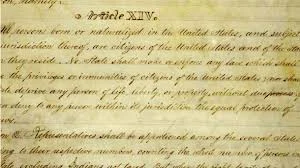 namely:
Article XIV.
persons born or naturalized in the United States, and subject
jurisdiction thereof, are citizens of the United States and of the
they reside. No State shall make or enforce any law which shall
the privileges or immunities of citizens of the United States; nor
deprive any person of life, liberty, or property, without due process
deny to any person within its jurisdiction the equal protection of
Representatives shall be apportioned among the several States
to their respective numbers, counting the whole number of
State, excluding Indians not taxed. But when the